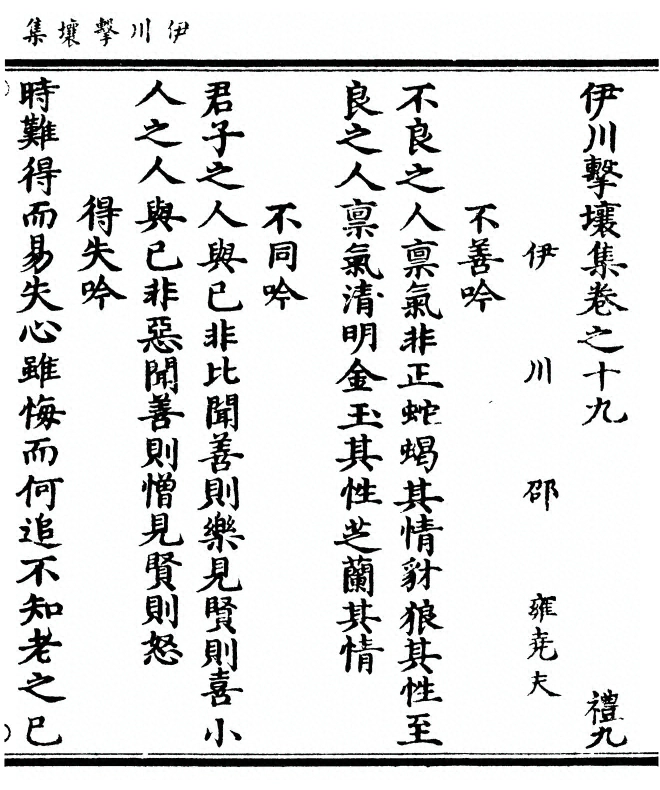 伊川擊壤集
伊川擊壤集卷之十九
禮九
伊川邵雍堯夫
不善吟
不良之人禀氣非正蛇蝎其情豺狼其性至
良之人禀氣清明金玉其性芝蘭其情
不同吟
君子之人與已非比聞善則樂見賢則喜小
人之人與已非惡聞善則憎見賢則怒
得失吟
時難得而易失心雖悔而何追不知老之已